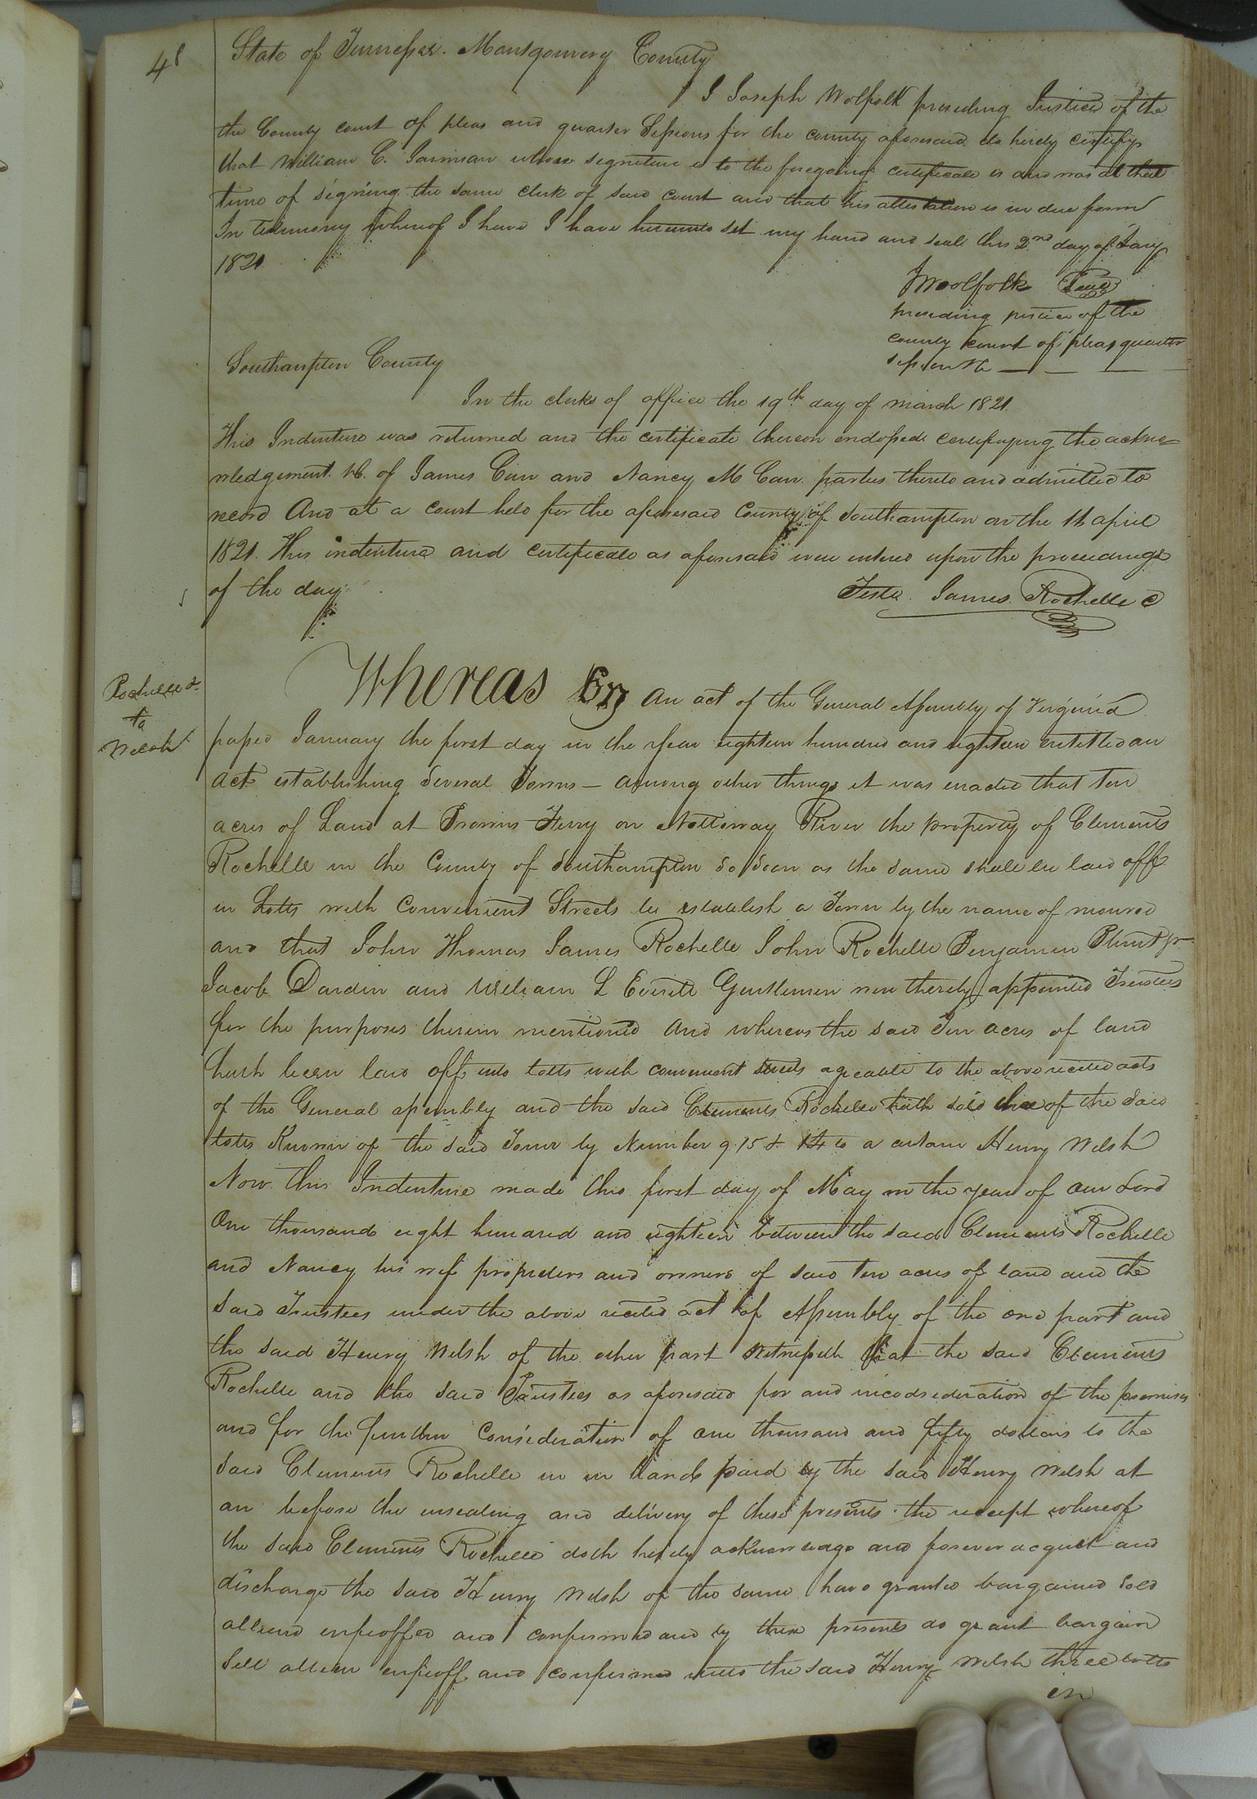 48
State of Tennessee. Montgomery County
I Joseph Wolfolk presiding Justice of the
the County court of pleas and quarter Sessions for the county aforesaid do hereby certify
that William C. Jamison whose signature is to the foregoing certificate is and was at that
time of signing the same clerk of said court and that his attestation is in due form
In testimony whereof I have I have hereunto set my hand and seal this 2nd day of Jany
1821
J Woolfolk Seal
presiding justice of the
county court of pleas quarter
sessions &c
Southampton County
In the clerks of office the 19th day of march 1821
This Indenture was returned and the certificate thereon endorsed certifying the ackno=
wledgement &c. of James Carr and Nancy M Carr parties thereto and admitted to
record And at a court held for the aforesaid County of Southampton on the 16 april
1821. This indenture and certificate as aforesaid were entered upon the proceedings
of the day.
Teste. James Rochelle C
Rochelle &
to
Welsh
Whereas By an act of the General Assembly of Virginia
passed January the first day in the year eighteen hundred and eighteen entitled an
act establishing several Towns – among other things it was enacted that ten
acres of Land at Browns Ferry on Nottoway River the property of Clements
Rochelle in the County of Southampton so soon as the same shall be laid off
in Lotts with Convenient Streets be establish a Town by the name of monroe
and that John Thomas James Rochelle John Rochelle Benjamin Blunt jr
Jacob Dardin and William L Everett Gentlemen were thereby appointed Trustees
for the purposes therein mentioned And whereas the said Ten acres of land
hath been laid off into lotts with convenient streets agreeable to the above recited acts
of the General assembly and the said Clements Rochelle hath sold three of the said
lotts Known of the said Town by Number 9. 15 & 14 to a certain Henry Welsh
Now this Indenture made this first day of May in the year of our Lord
One thousand eight hundred and eighteen between the said Clements Rochelle
and Nancy his wife proprietors and owners of said ten acres of land and the
said Trustees under the above recited act of Assembly of the one part and
the said Henry Welsh of the other part Witnesseth that the said Clements
Rochelle and the said Trustees as aforesaid for and inconsideration of the premises
and for the further Consideration of one thousand and fifty dollars to the
said Clements Rochelle in in hand paid by the said Henry Welsh at
an before the ensealing and delivery of these presents the receipt whereof
the said Clements Rochelle doth hereby acknowledge and forever acquit and
discharge the said Henry Welsh of the same have granted bargained sold
aliend enfeoffed and confirmed and by these presents do grant bargain
sell alien enfeoff and confirmed unto the said Henry Welsh three lotts
in